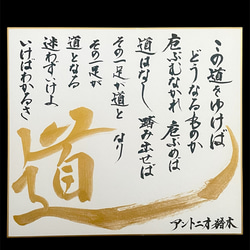 この道をゆけば
どうなるものか
危ぶむなかれ 危ぶめば
道はなし 踏み出せば
その一足が道と なり
その一足が
道となる
迷わずいけよ
いけばわかるさ
道
アントニオ猪木